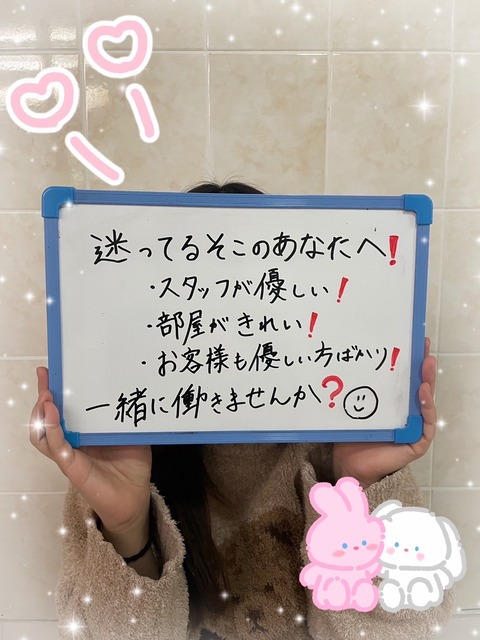 迷ってるそこのあなたへ!
・スタッフが優しい!
・部屋がきれい!
・お客様も優しい方ばかり!
一緒に働きませんか?